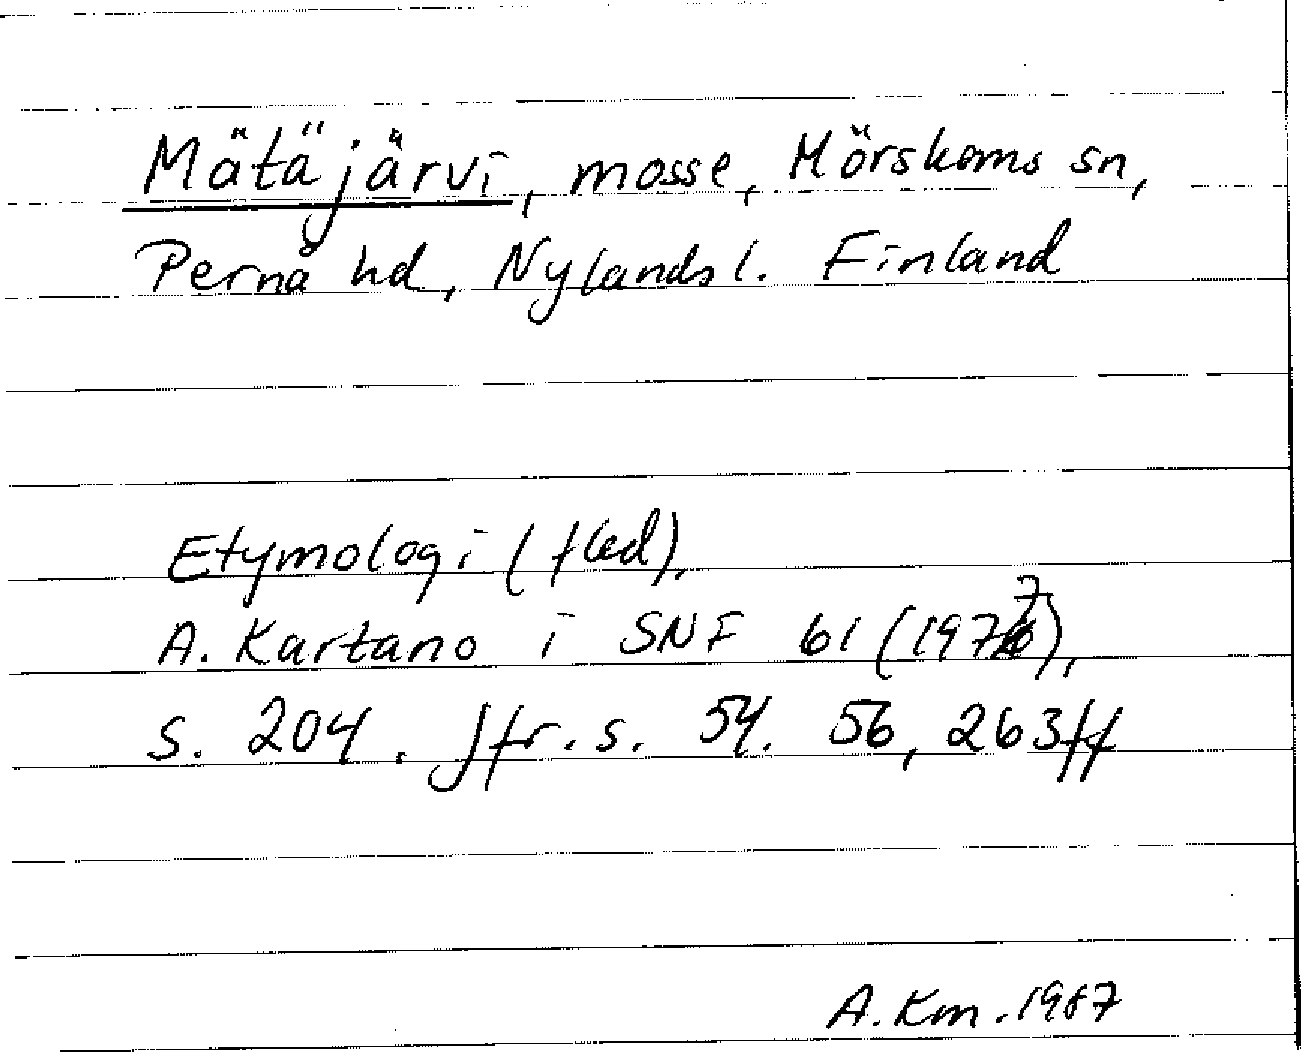 Mätäjärvi, mosse, Mörskoms sn,
Pernå hd, Nylands l. Finland
Etymologi (fled).
A. Kartano i SNF 61 (1977),
s. 204. Jfr. s. 54. 56, 263ff
A. Km. 1987